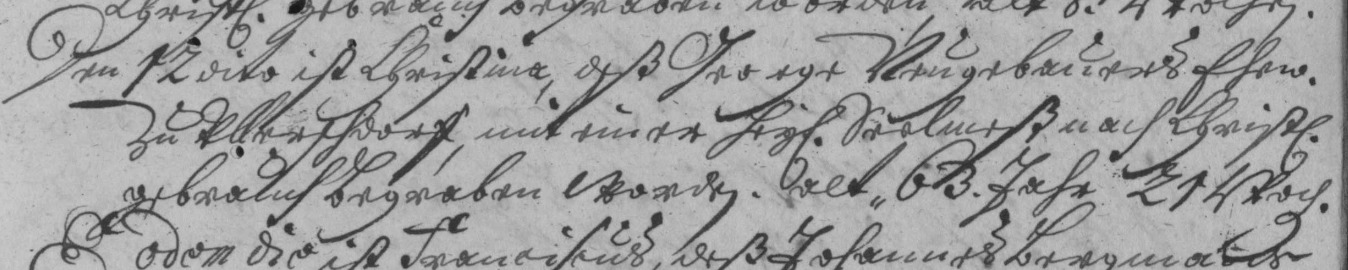 Christl. gebrauch begraben worden, alt 8. Wochen.
Den 12 dito ist Christina, deß George Neugebauers Ehew.
zu Ullerschdorf, mit einer heyl. Seelmeß nach Christl.
gebrauch begraben worden. alt, 63. Jahr 21 Woch.
Eodem die ist Franciscus, deß Johannes Bergmans